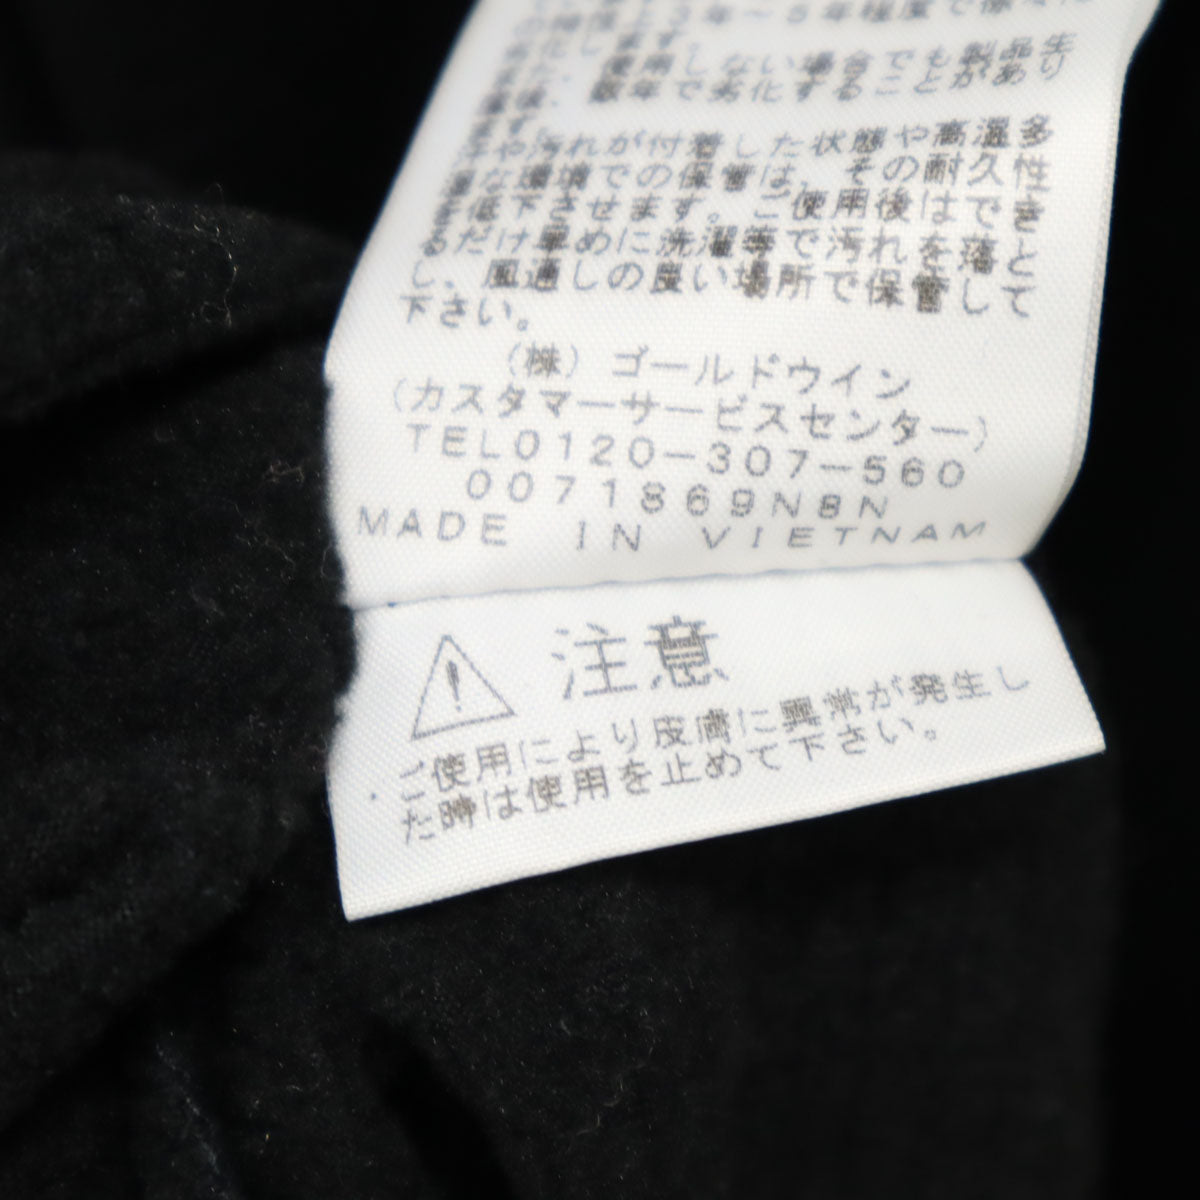 3年〜5年程度で徐々に
使用しない場合でも製品生
数年で劣化することがあり
ます。
汗や汚れが付着した状態や高温多
湿な環境での保管は、その耐久性
を低下させます。ご使用後はでき
るだけ早めに洗濯等で汚れを落と
し、風通しの良い場所で保管して
下さい。
(株) ゴールドウイン
(カスタマーサービスセンター)
TEL0120-307-560
0071869N8N
MADE IN VIETNAM
注意
ご使用により皮膚に異常が発生し
た時は使用を止めて下さい。